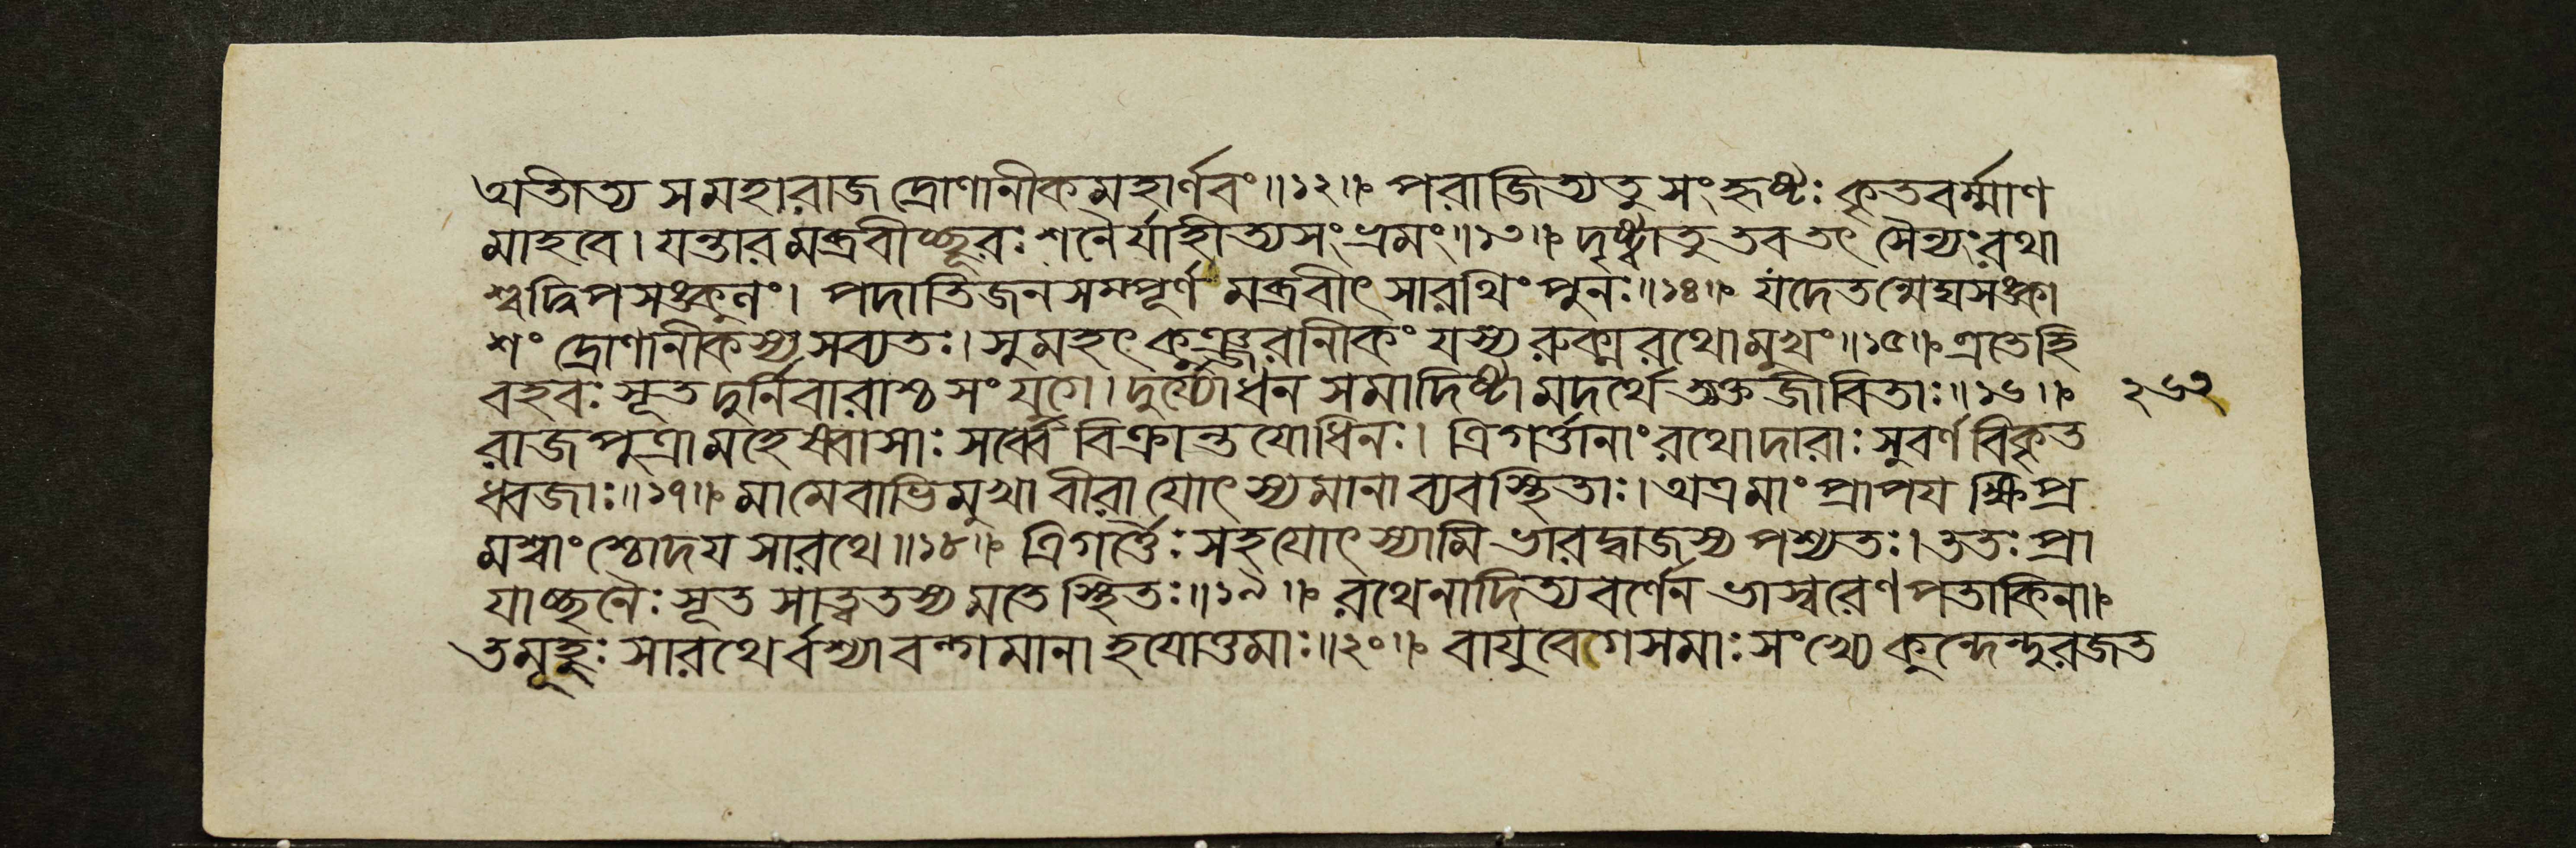 অতীত্য স মহারাজ দ্রোণানীকমহার্ণবং॥১২॥ পরাজিত্য তু সংহৃষ্টঃ কৃতবর্ম্মাণ
মাহবে। যন্তারমব্রবীচ্ছূরঃ শনৈর্যাহীত্যসংভ্রমং॥১৩॥ দৃষ্ট্বা তু তব তৎ সৈন্যং রথা
শ্বদ্বিপসঙ্কুলং। পদাতিজনসম্পূর্ণমব্রবীৎ সারথিং পুনঃ॥১৪॥ যদেতন্মেঘসঙ্কা
শং দ্রোণানীকস্য সব্যতঃ। সুমহৎ কুঞ্জরানিকং যস্য রুক্মরথো মুখং॥১৫॥ এতে হি
বহবঃ সূত দুর্নিবারাশ্চ সংযুগে। দুর্য্যোধন সমাদিষ্টা মদর্থে ত্যক্তজীবিতাঃ॥১৬॥ ২৬২
রাজপুত্রা মহেষ্বাসাঃ সর্ব্বে বিক্রান্তযোধিনঃ। ত্রিগর্ত্তানাং রথোদারাঃ সুবর্ণবিকৃত
ধ্বজাঃ॥১৭॥ মামেবাভিমুখা বীরা যোৎস্যমানা ব্যবস্থিতাঃ। অত্র মাং প্রাপয ক্ষিপ্র
মশ্বাংশ্চোদয সারথে॥১৮॥ ত্রিগর্ত্তৈঃ সহ যোৎস্যামি ভারদ্বাজস্য পশ্যতঃ। ততঃ প্রা
যাচ্ছনৈঃ সূত সাত্বতস্য মতে স্থিতঃ॥১৯॥ রথেনাদিত্যবর্ণেন ভাস্বরেণ পতাকিনা।
তমূহুঃ সারথের্বশ্যা বল্গমানা হযোত্তমাঃ॥২০॥ বাযুবেগসমাঃ সংখ্যে কুন্দেন্দুরজত